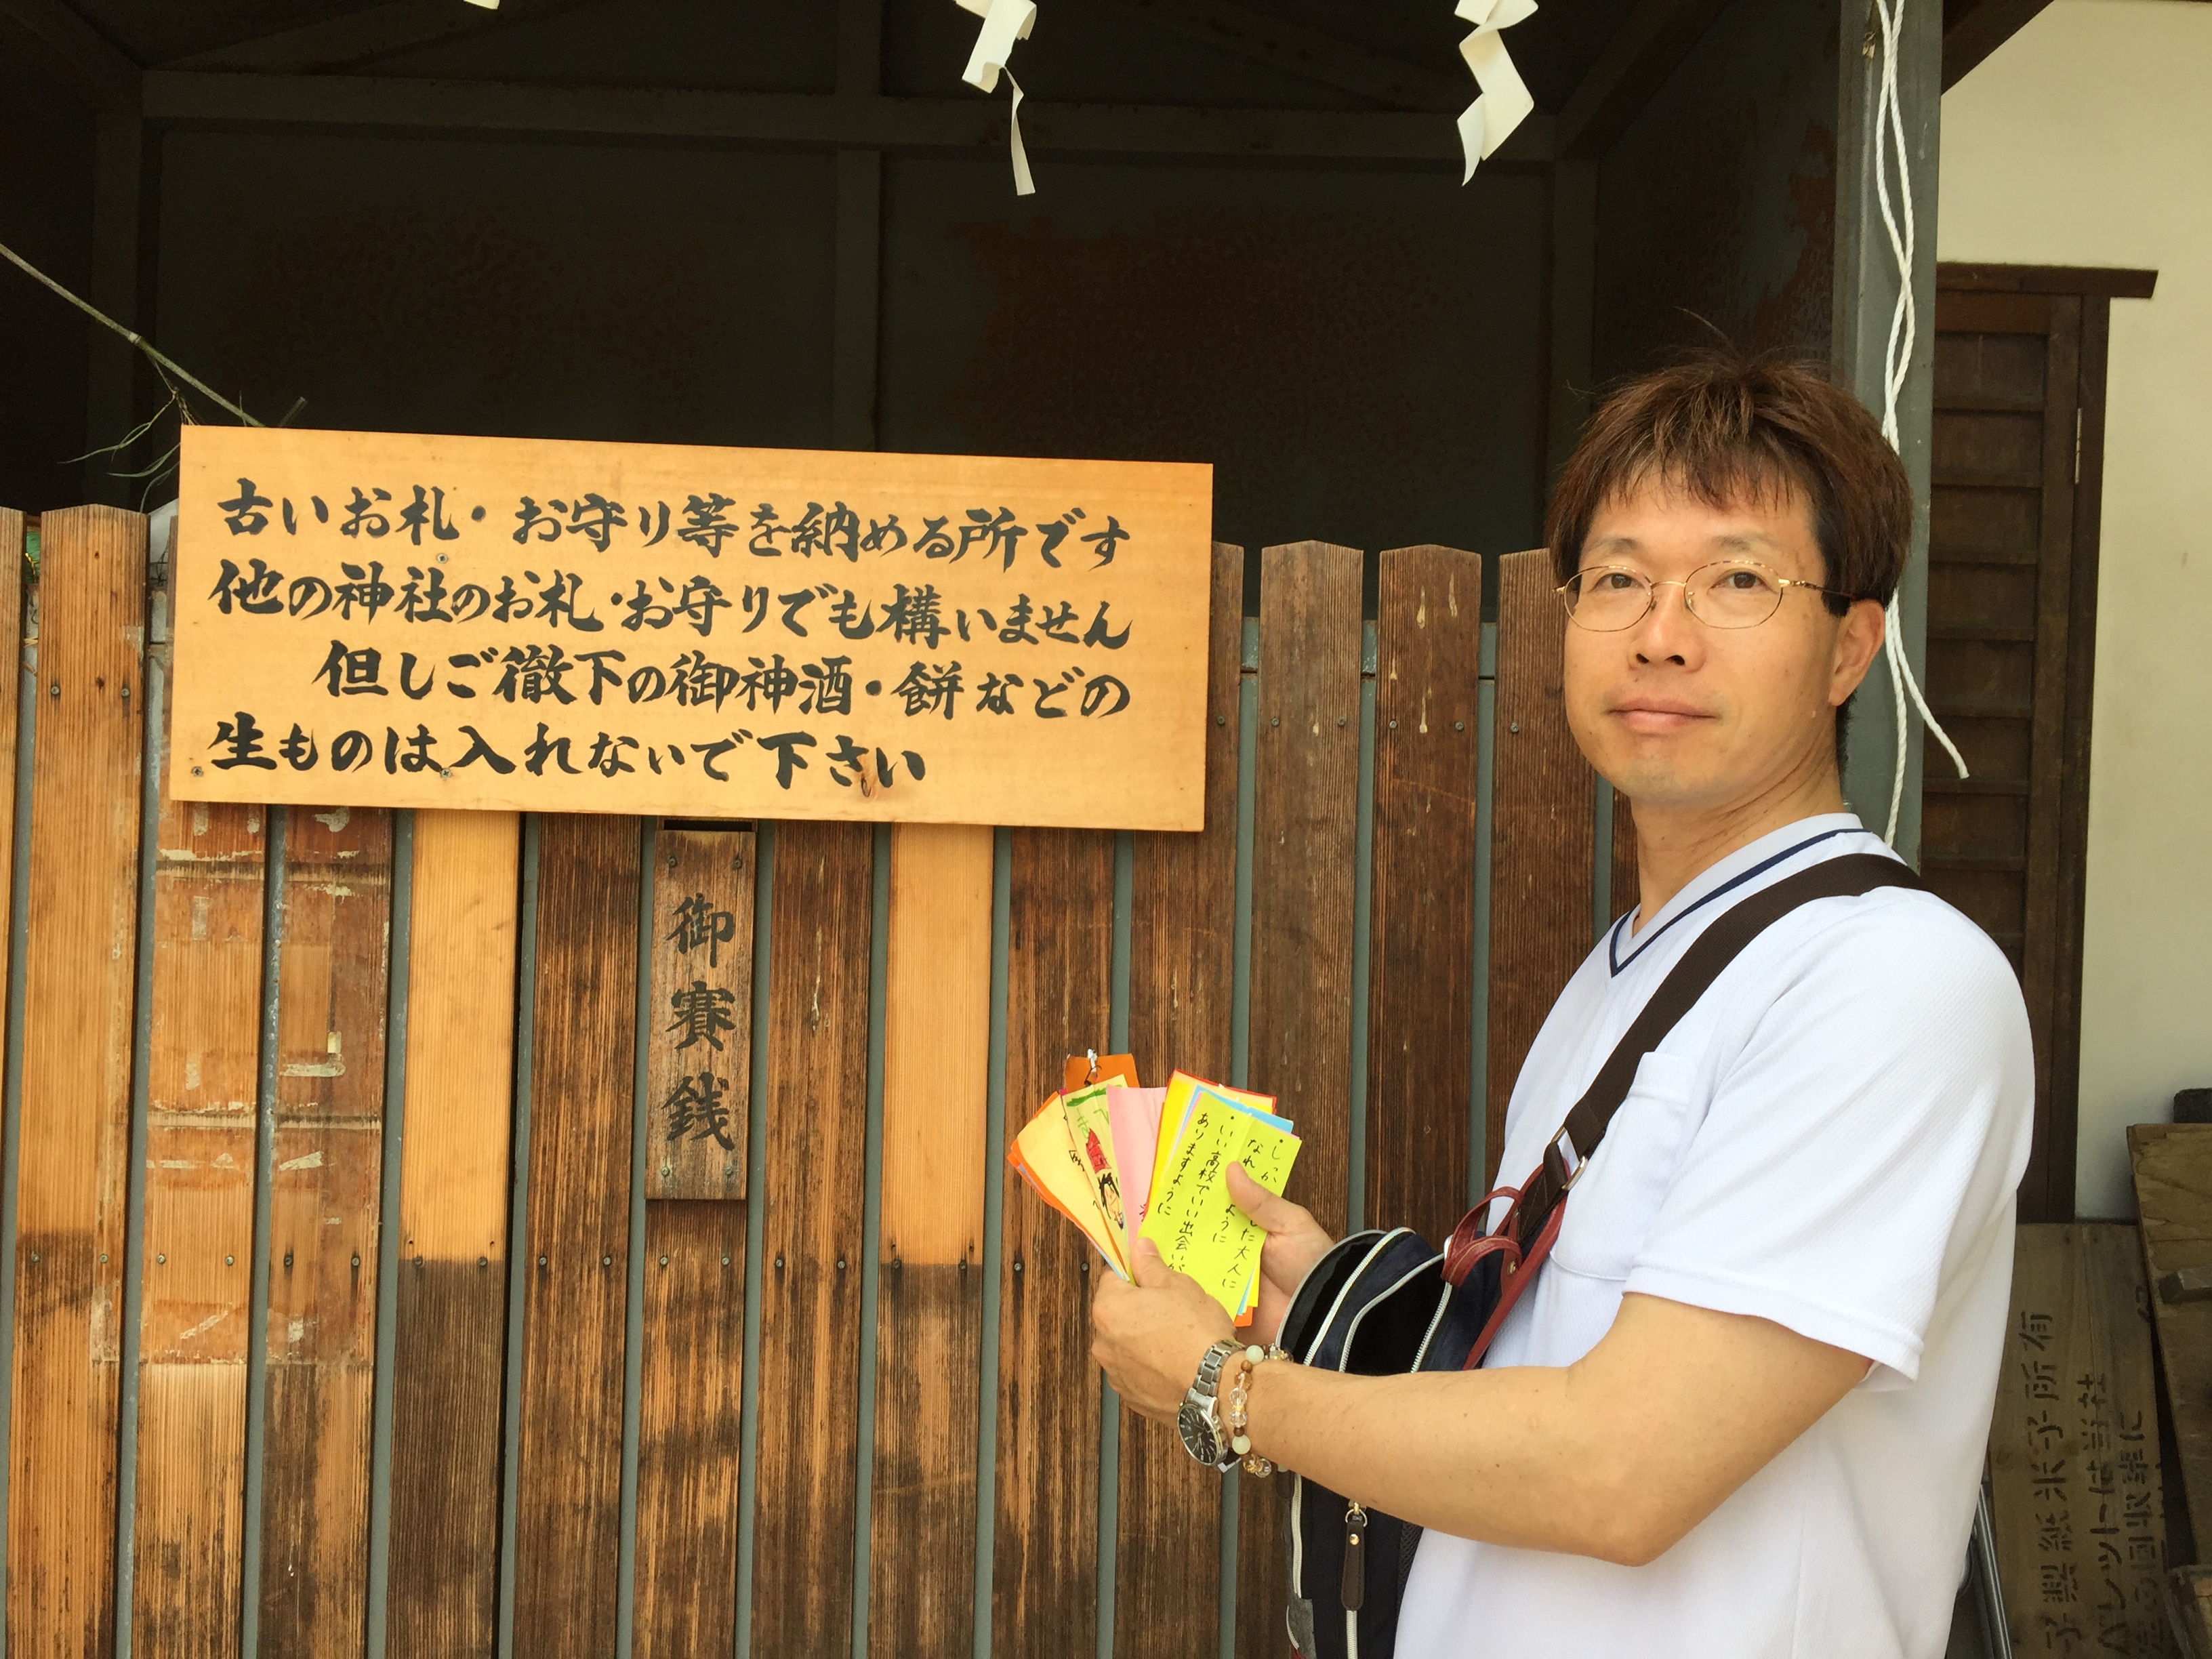 古いお札・お守り等を納める所です
他の神社のお札・お守りでも構いません
但しご徹下の御神酒・餅などの
生ものは入れないで下さい
御賽銭
・しっか した大人に
なれ ように
・いい高校でいい出会いが
ありますように
子製紙米子所有
パレットは当社